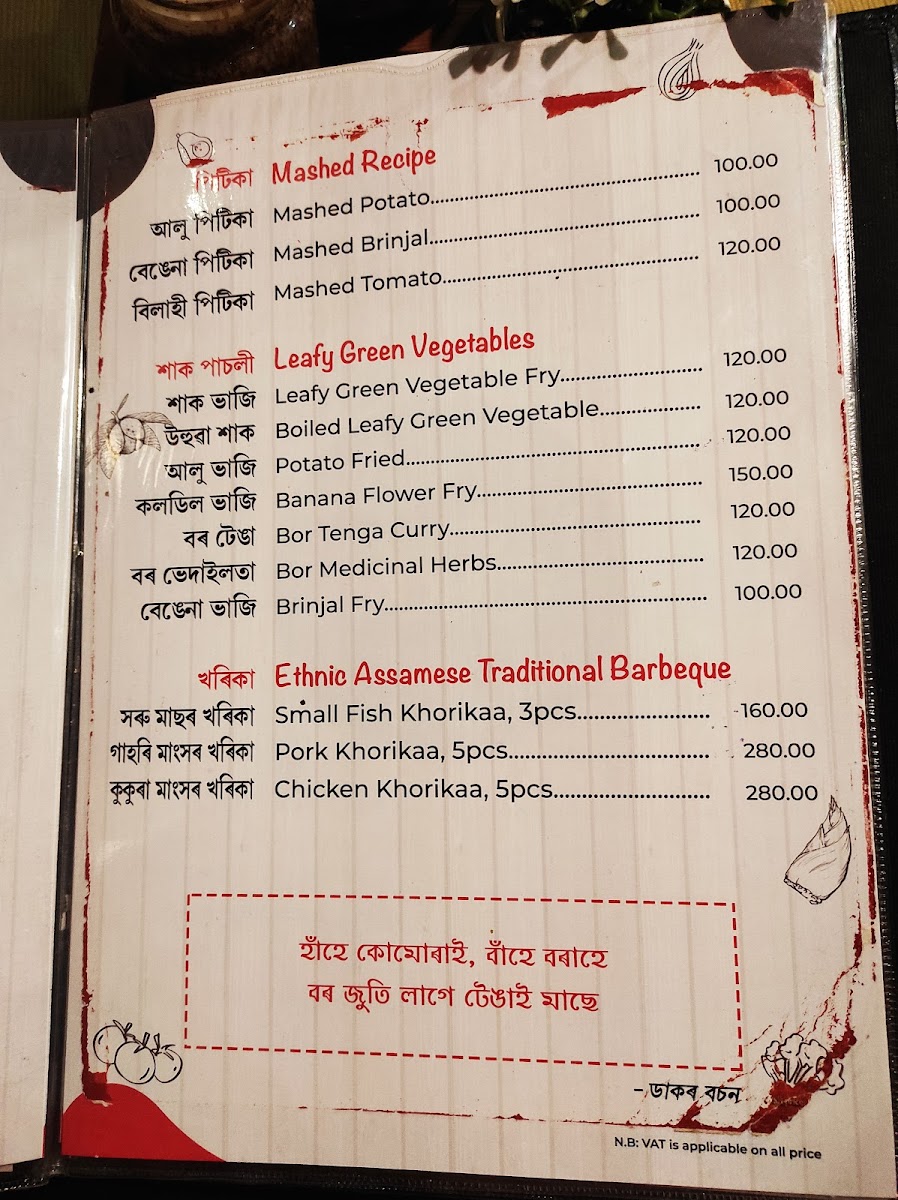 পিটিকা Mashed Recipe
আলু পিটিকা Mashed Potato 100.00
বেঙেনা পিটিকা Mashed Brinjal 100.00
বিলাহী পিটিকা Mashed Tomato 120.00
শাক পাচলী Leafy Green Vegetables
শাক ভাজি Leafy Green Vegetable Fry 120.00
উহুৱা শাক Boiled Leafy Green Vegetable 120.00
আলু ভাজি Potato Fried 120.00
কলডিল ভাজি Banana Flower Fry 150.00
বৰ টেঙা Bor Tenga Curry 120.00
বৰ ভেদাইলতা Bor Medicinal Herbs 120.00
বেঙেনা ভাজি Brinjal Fry 100.00
খৰিকা Ethnic Assamese Traditional Barbeque
সৰু মাছৰ খৰিকা Small Fish Khorikaa, 3pcs 160.00
গাহৰি মাংসৰ খৰিকা Pork Khorikaa, 5pcs 280.00
কুকুৰা মাংসৰ খৰিকা Chicken Khorikaa, 5pcs 280.00
হাঁহে কোমোৰাই, বাঁহে বৰাহে
বৰ জুতি লাগে টেঙাই মাছে
– ডাকৰ বচন
N.B: VAT is applicable on all price